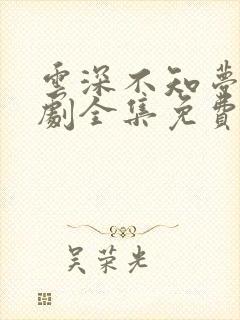 雲深不知夢
劇全集免費
吴荣光